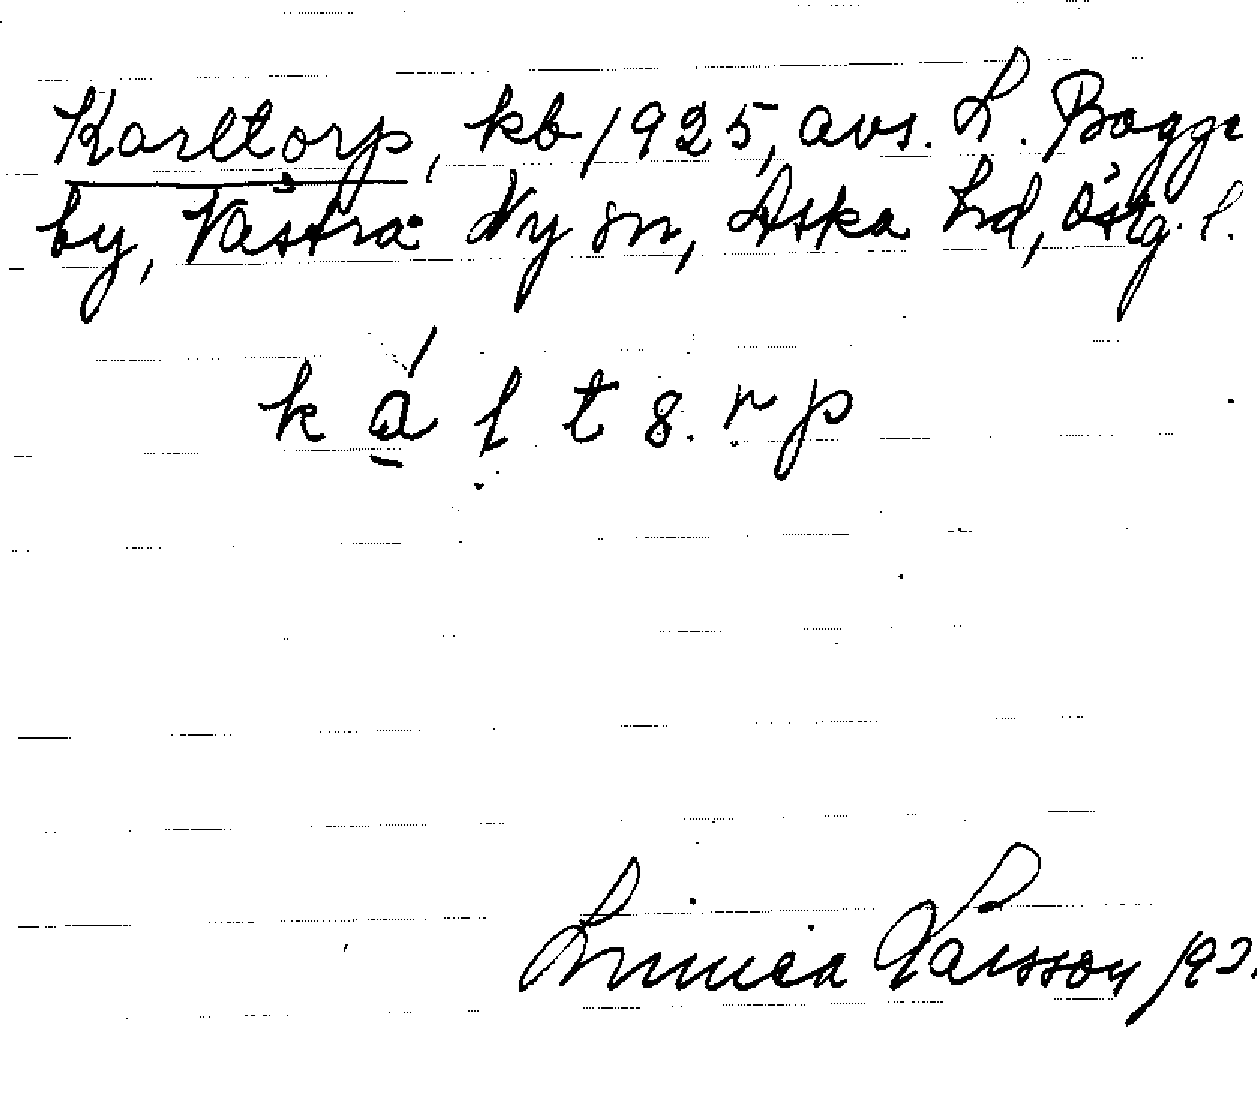 Karltorp, kb 1925, avs. L. Bagge
by, Västra Ny sn, Aska hd, Östg. l.
k á l t 8. r p
Linnea Larsson 193